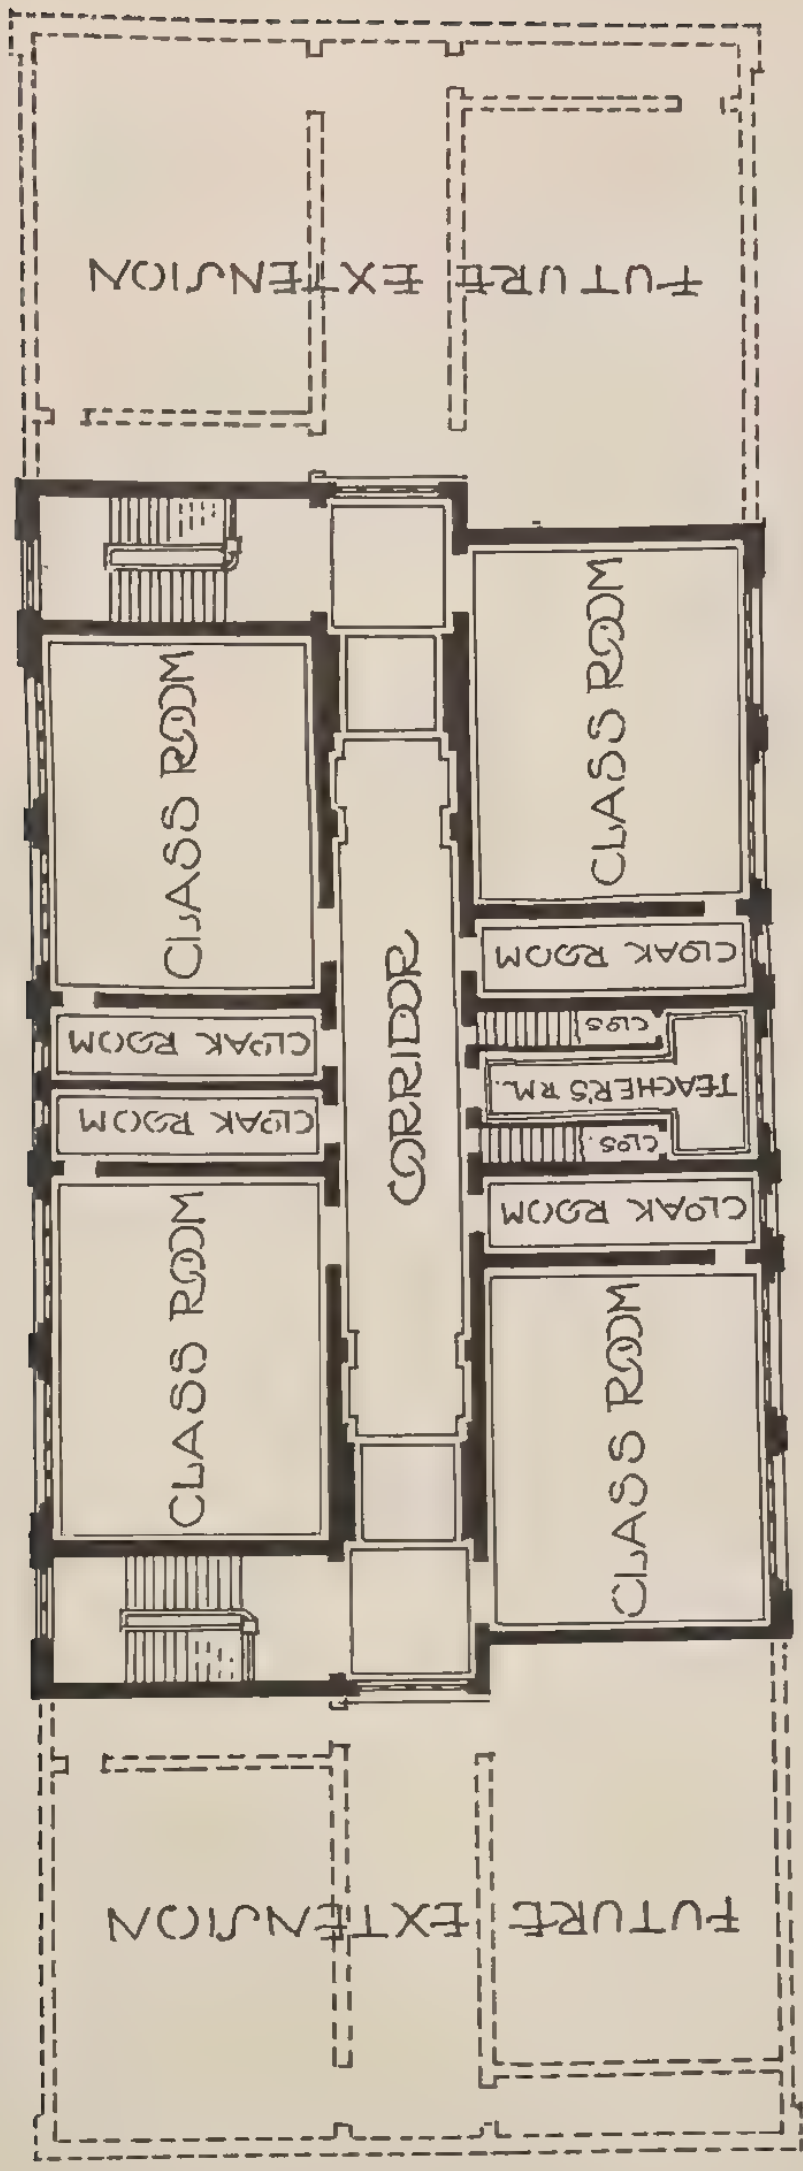 FUTURE EXTENSION
CLASS ROOM
CLASS ROOM
CLOAK ROOM
CLOAK ROOM
CLOS
TEACHER'S RM.
CORRIDOR
CLOAK ROOM
CLOS.
CLOAK ROOM
CLASS ROOM
CLASS ROOM
FUTURE EXTENSION